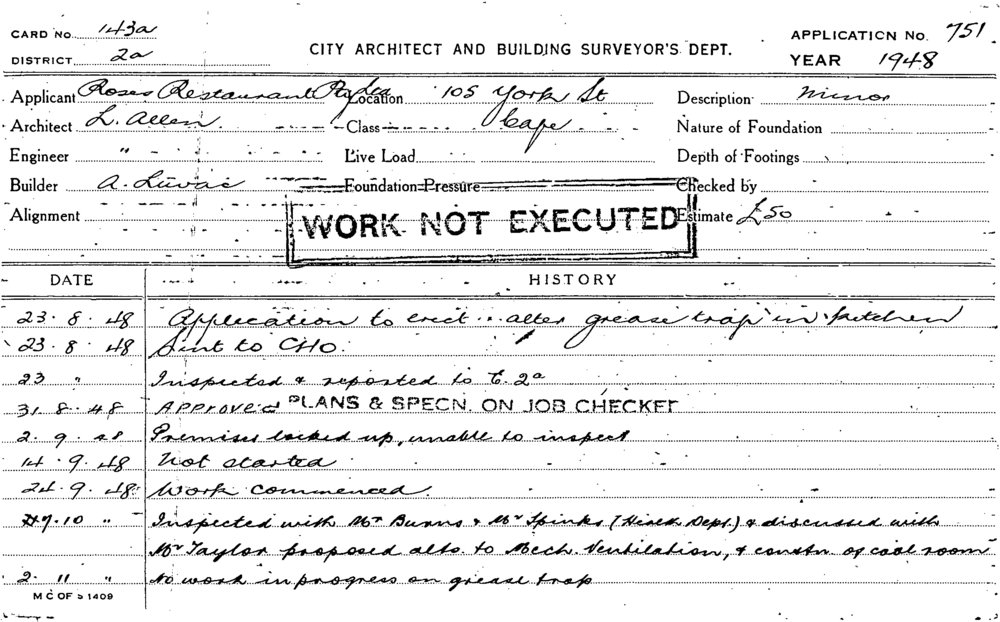 CARD No. 143a
APPLICATION No. 751
DISTRICT 2a
CITY ARCHITECT AND BUILDING SURVEYOR'S DEPT.
YEAR 1948
Applicant Roses Restaurant Pty Ltd Location 105 York St Description minor
Architect L. Allen Class Cafe Nature of Foundation
Engineer " Live Load Depth of Footings
Builder A. Foundation Pressure Checked by
Alignment WORK NOT EXECUTED Estimate £50
DATE HISTORY
23.8.48 Application to erect alter grease trap in kitchen
23.8.48 Sent to CHO.
23 " Inspected & reported to E. 2a
31.8.48 APPROVED PLANS & SPECN. ON JOB CHECKED
2.9.48 Premises locked up, unable to inspect
14.9.48 Not started
24.9.48 Work commenced.
7.10 " Inspected with Mr Burns & Mr Spinks (Health Dept.) & discussed with
Mr Taylor proposed alts. to Mech. Ventilation, & constn. of cool room
2.11 " No work in progress on grease trap
M C OF S 1409